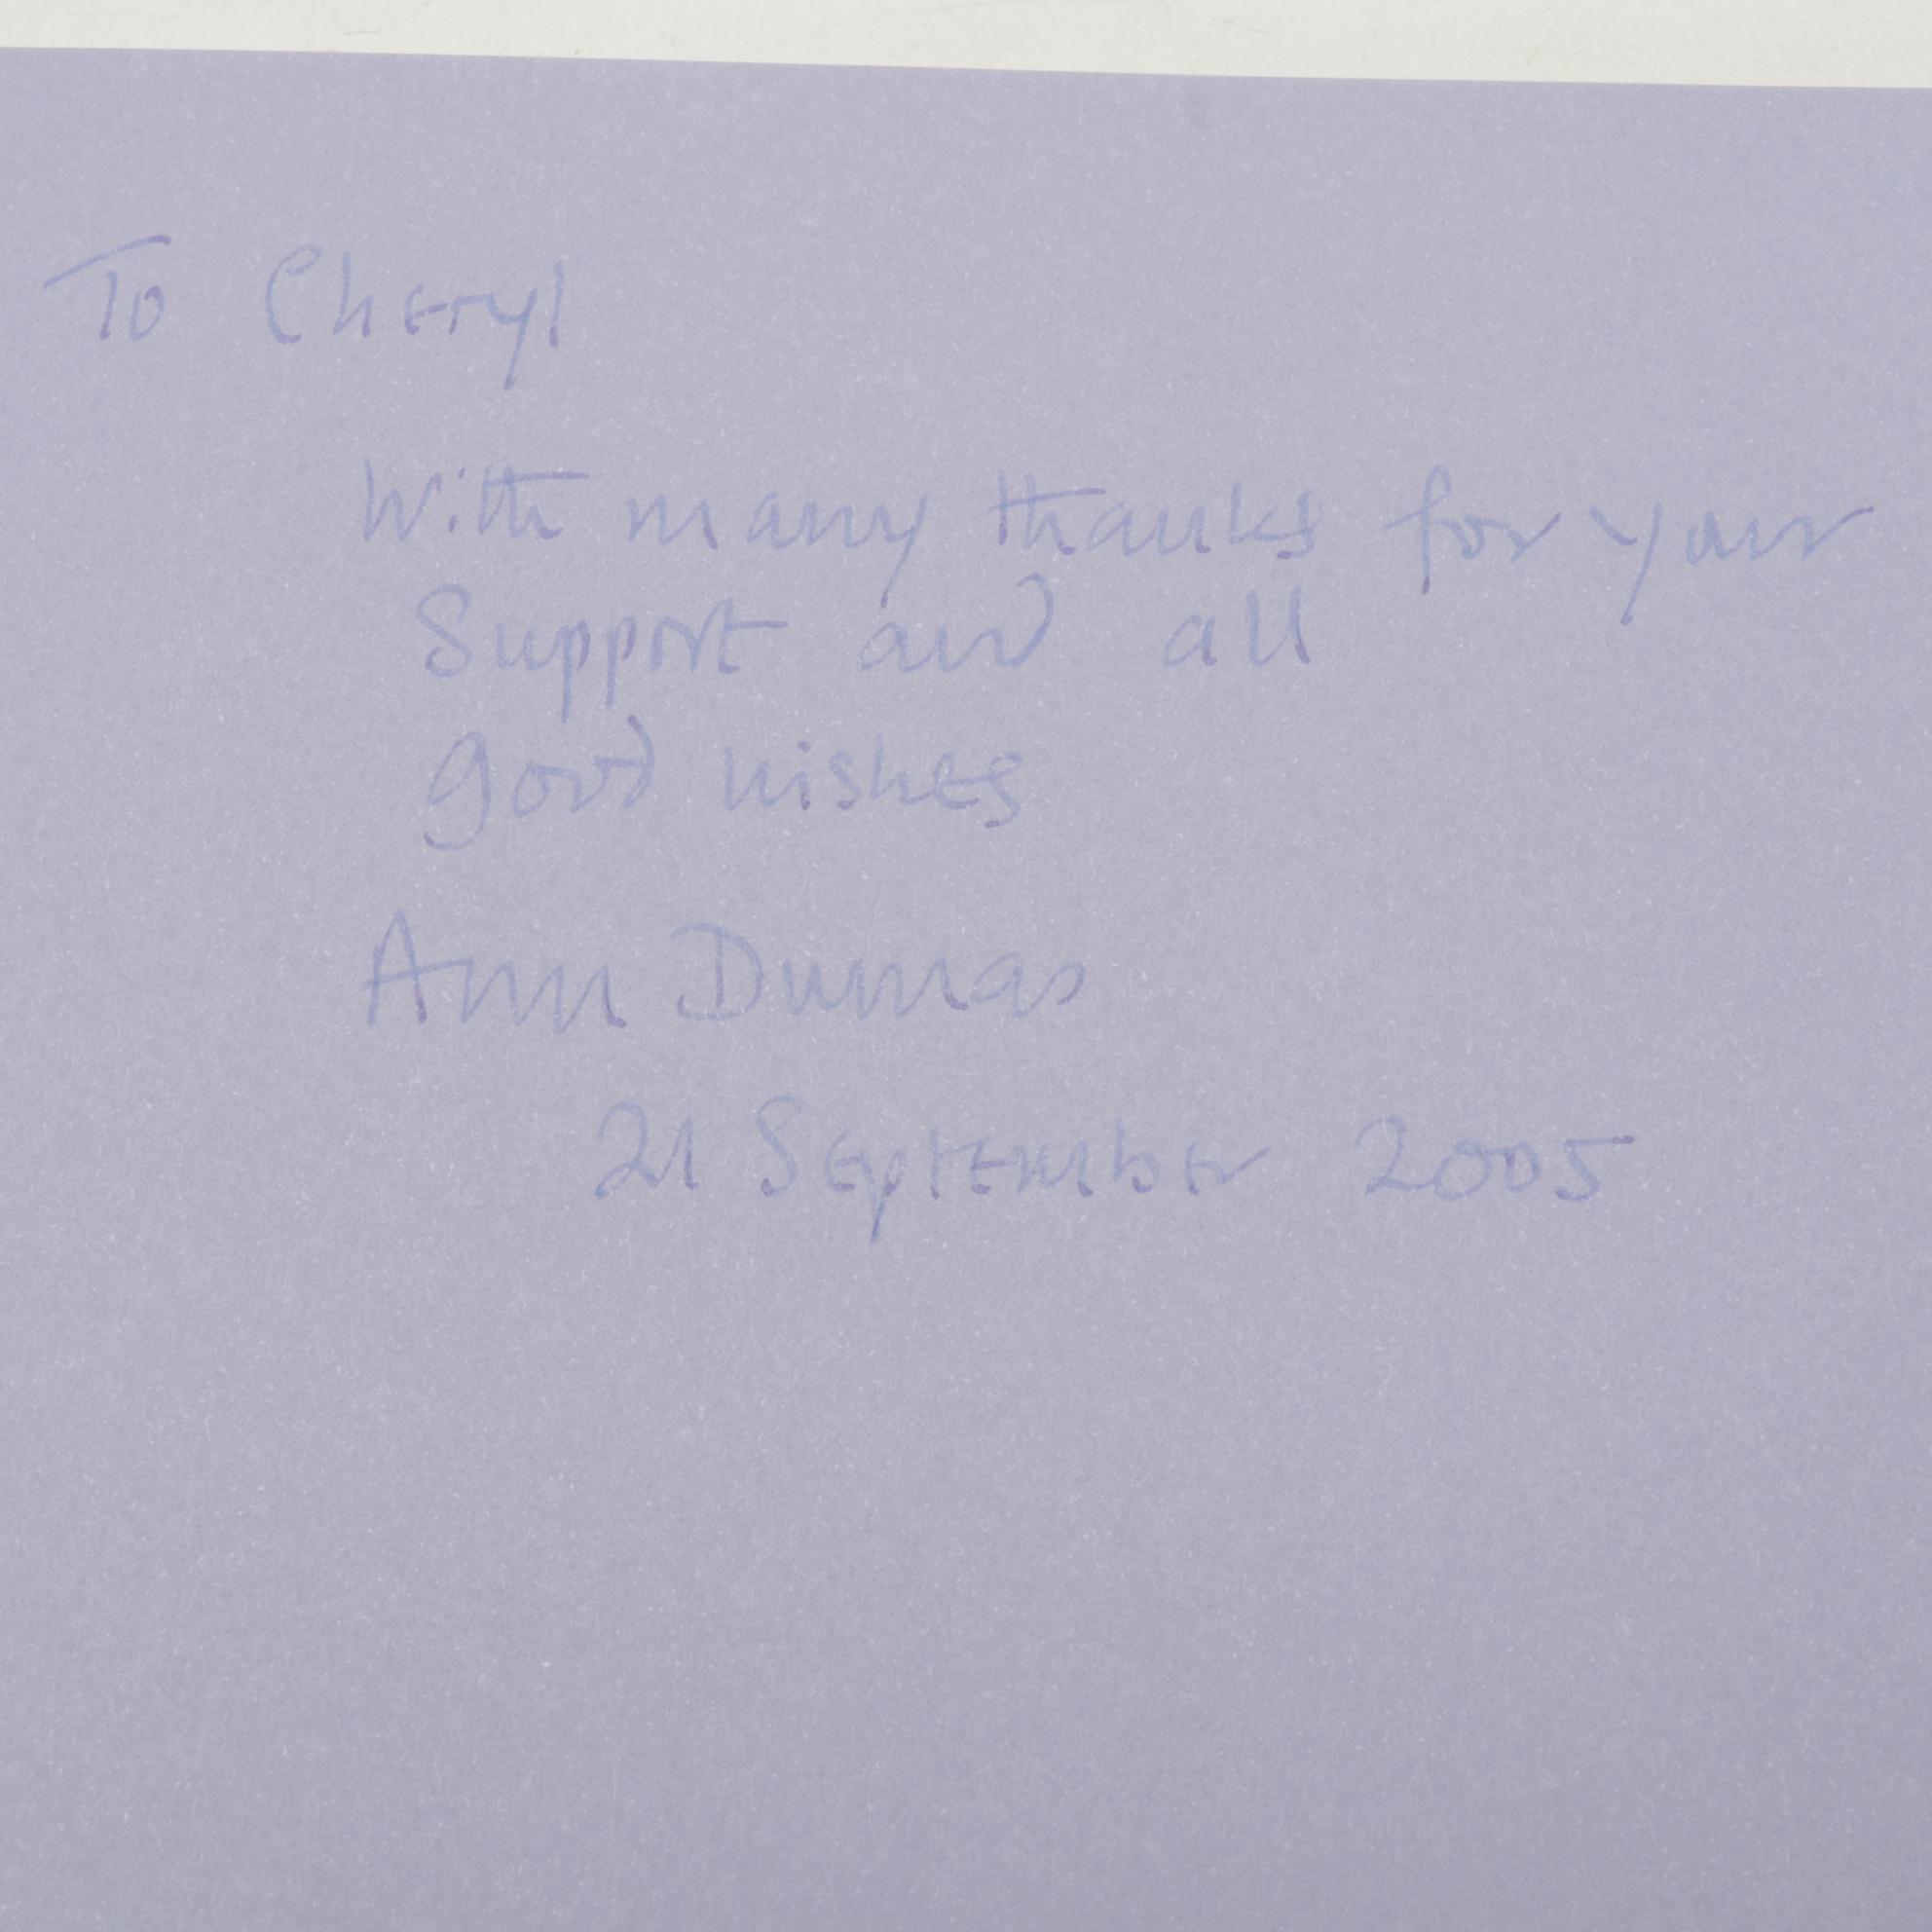 To Cheryl
With many thanks for your
Support and all
good wishes
Ann Dumas
21 September 2005